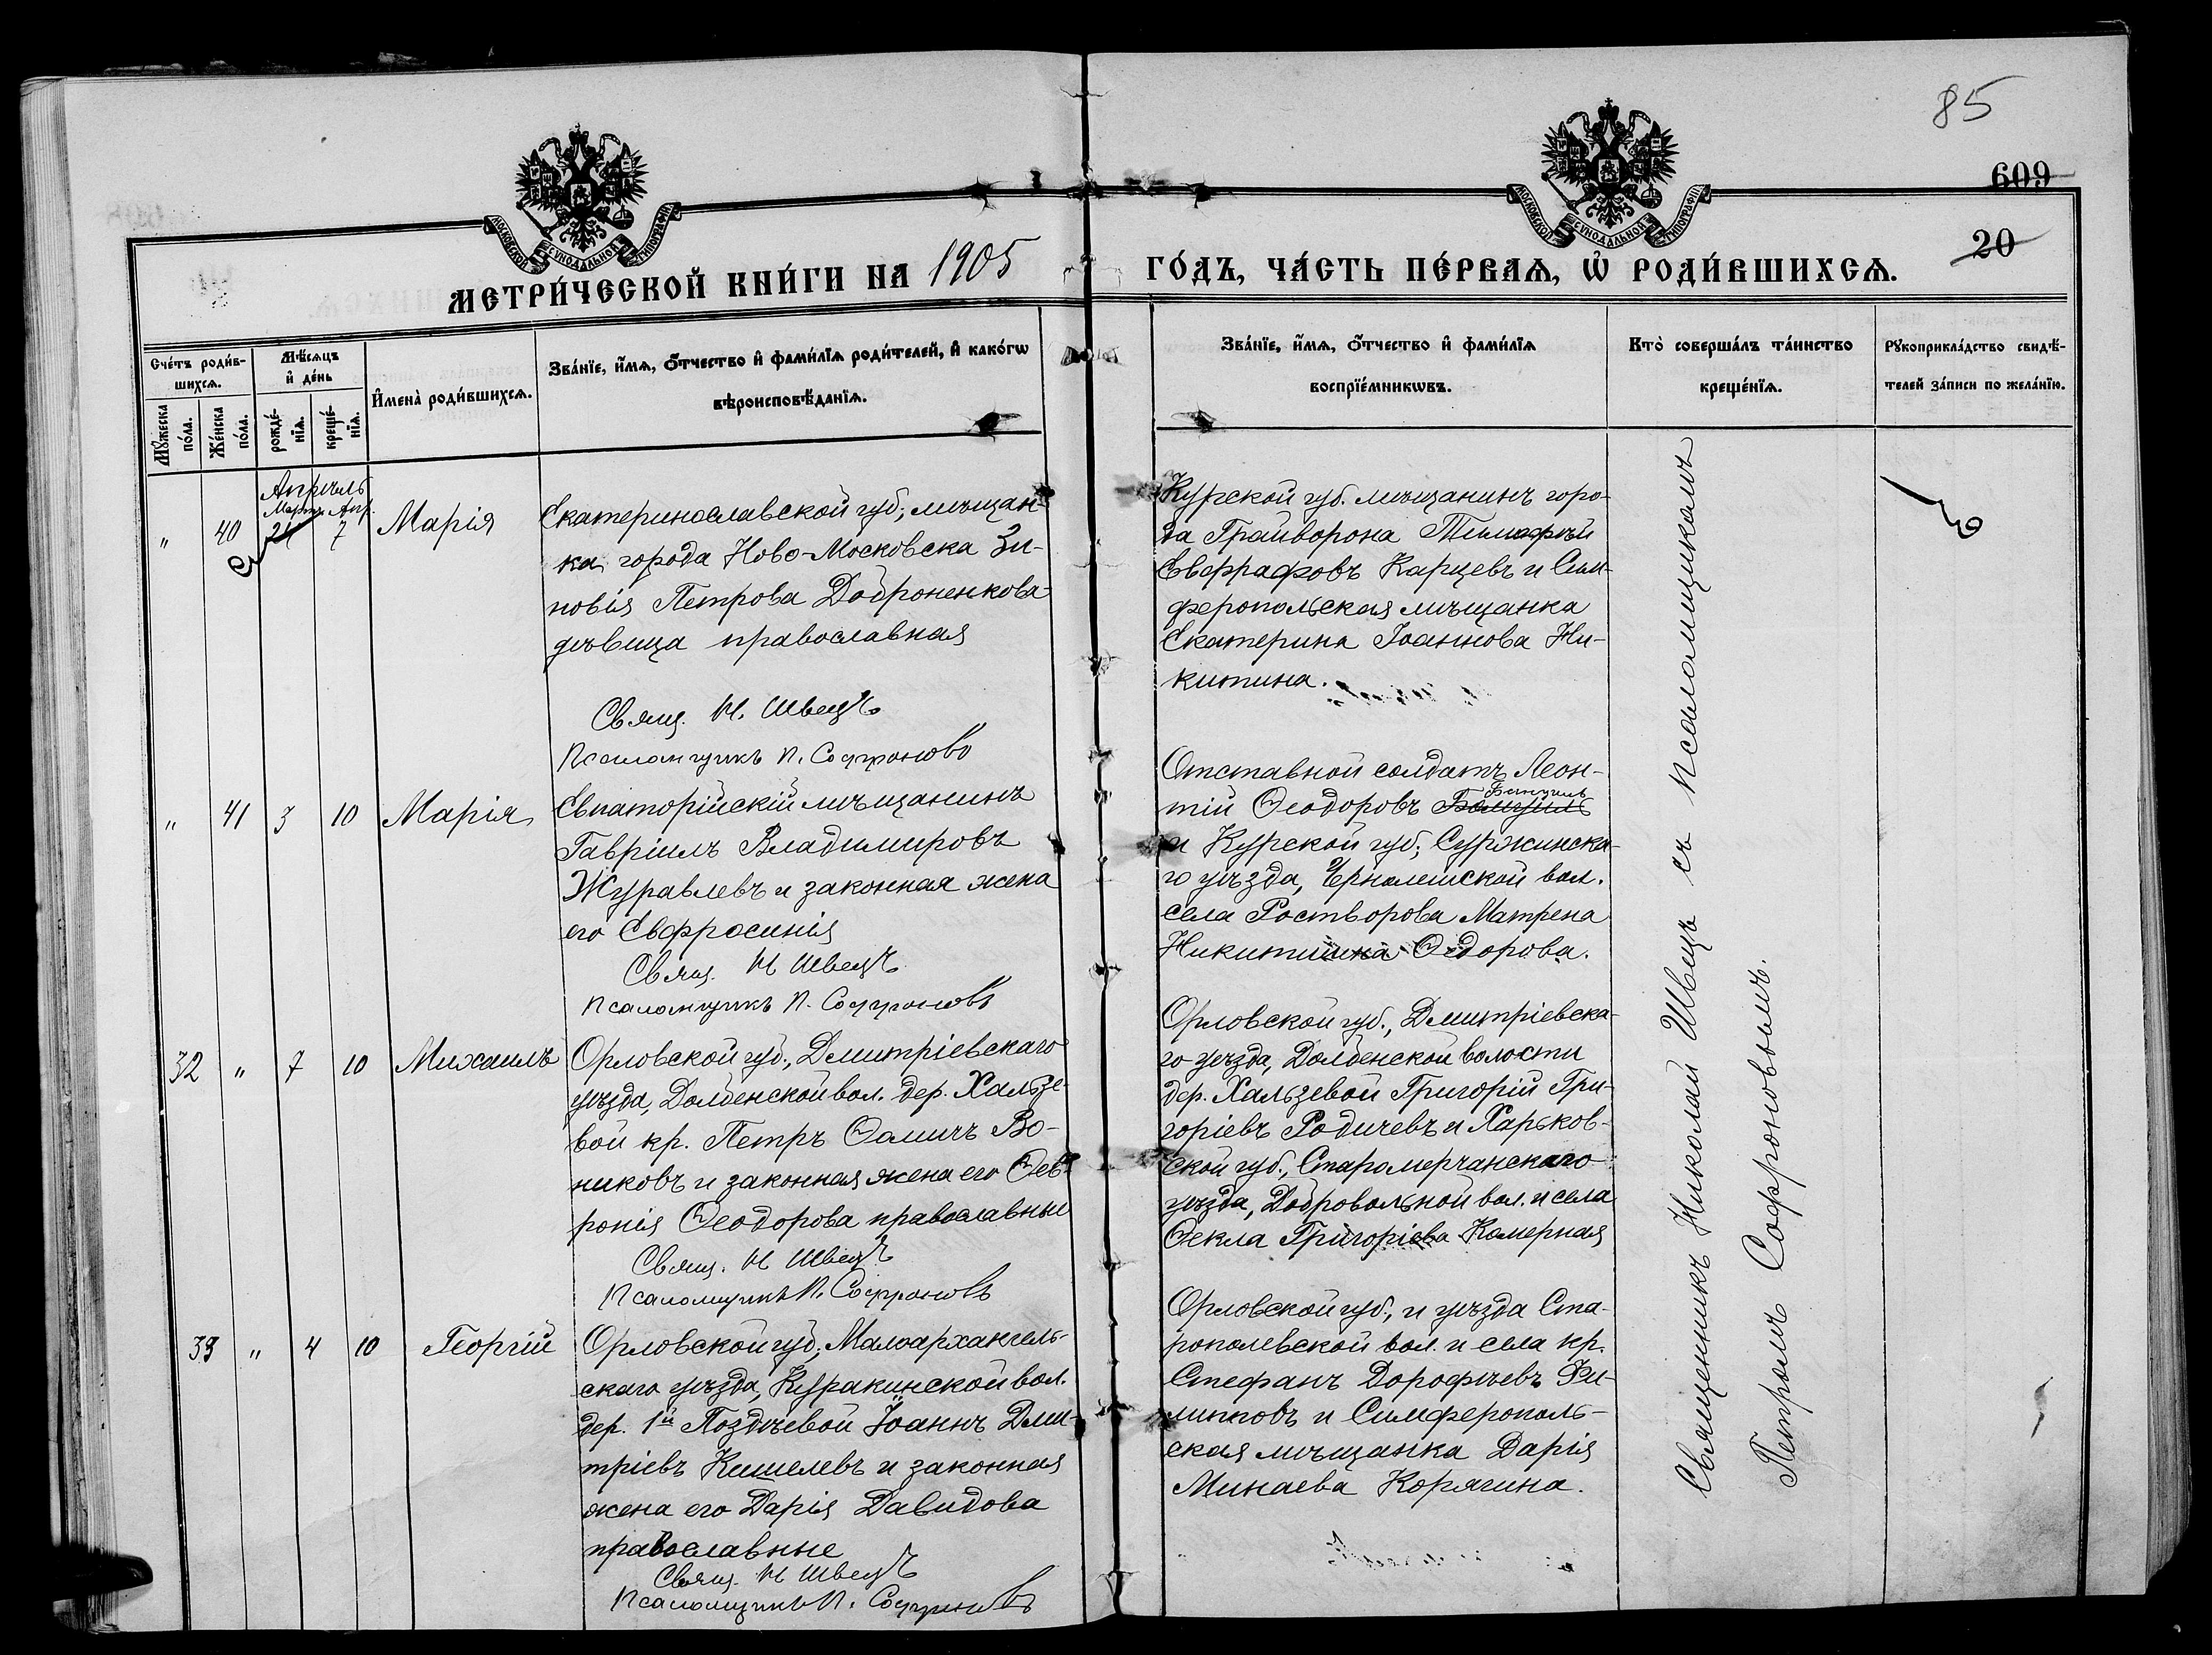 85
609
20
МОСКОВСКОЙ СУНОДАЛЬНОЙ ТИПОГРАФІИ
МОСКОВСКОЙ СУНОДАЛЬНОЙ ТИПОГРАФІИ
МЕТРИ́ЧЕСКОЙ КНИ́ГИ НА 1905
ГО́ДЪ, ЧА́СТЬ ПЕ́РВАѦ, Ѡ҆ РОДИ́ВШИХСѦ.
Сче́тъ роди́в-
шихсѧ.
Мꙋ́жеска по́ла.
Же́нска по́ла.
Мѣ́сѧцъ
и҆ де́нь
рожде́-
нїѧ.
креще́-
нїѧ.
И҆мена̀ роди́вшихсѧ.
Зва́нїе, и҆́мѧ, ѻ҆́тчество и҆ фами́лїѧ роди́телей, и҆ како́гѡ
вѣроисповѣ́данїѧ.
Зва́нїе, и҆́мѧ, ѻ҆́тчество и҆ фами́лїѧ
воспрїе́мникѡвъ.
Кто̀ соверша́лъ та́инство
креще́нїѧ.
Рꙋкоприкла́дство свидѣ́-
телей за́писи по жела́нїю.
Апрѣль
Март. Апр.
" 40 24 7 Марія
Екатеринославской губ., мѣщан-
ка города Ново-Московска Зи-
новія Петрова Доброненкова
дѣвица православная
Свящ. Н. Швецъ
Псаломщикъ П. Софроновъ
Курской губ. мѣщанинъ горо-
да Грайворона Тимофѣй
Евфрафовъ Карцевъ и Сим-
феропольская мѣщанка
Екатерина Іоаннова Ни-
китина.
" 41 3 10 Марія
Евпаторійскій мѣщанинъ
Гавріилъ Владимировъ
Журавлевъ и законная жена
его Евфросинія
Свящ. Н Швецъ
Псаломщикъ П. Софроновъ
Отставной солдатъ Леон-
тій Ѳеодоровъ
и Курской губ., Суржинска-
го уѣзда, вол.
села Растворова Матрена
Никитина Ѳедорова.
32 " 7 10 Михаилъ
Орловской губ., Дмитріевскаго
уѣзда, Долбенской вол. дер. Хальзе-
вой кр. Петръ Ѳомичъ Во-
никовъ и законная жена его Ѳев-
ронія Ѳеодорова православные
Свящ. Н Швецъ
Псаломщикъ П. Софроновъ
Орловской губ., Дмитріевска-
го уѣзда, Долбенской волости
дер. Хальзевой Григорій Гри-
горіевъ Родичевъ и Харьков-
ской губ., Старомерчанскаго
уѣзда, Добровольной вол. и села
Ѳекла Григоріева Камерная
33 " 4 10 Георгій
Орловской губ., Малоархангель-
скаго уѣзда, Куракинской вол.
дер. 1й Поздѣевой Іоаннъ Дми-
тріевъ Кишелевъ и законная
жена его Дарія Давидова
православные
Свящ. Н Швецъ
Псаломщикъ П. Софроновъ
Орловской губ., и уѣзда Ста-
рополевской вол. и села кр.
Стефанъ Дорофѣевъ Фи-
липповъ и Симферополь-
ская мѣщанка Дарія
Минаева Корягина.
Священникъ Николай Швецъ съ псаломщикомъ
Петромъ Софроновымъ.